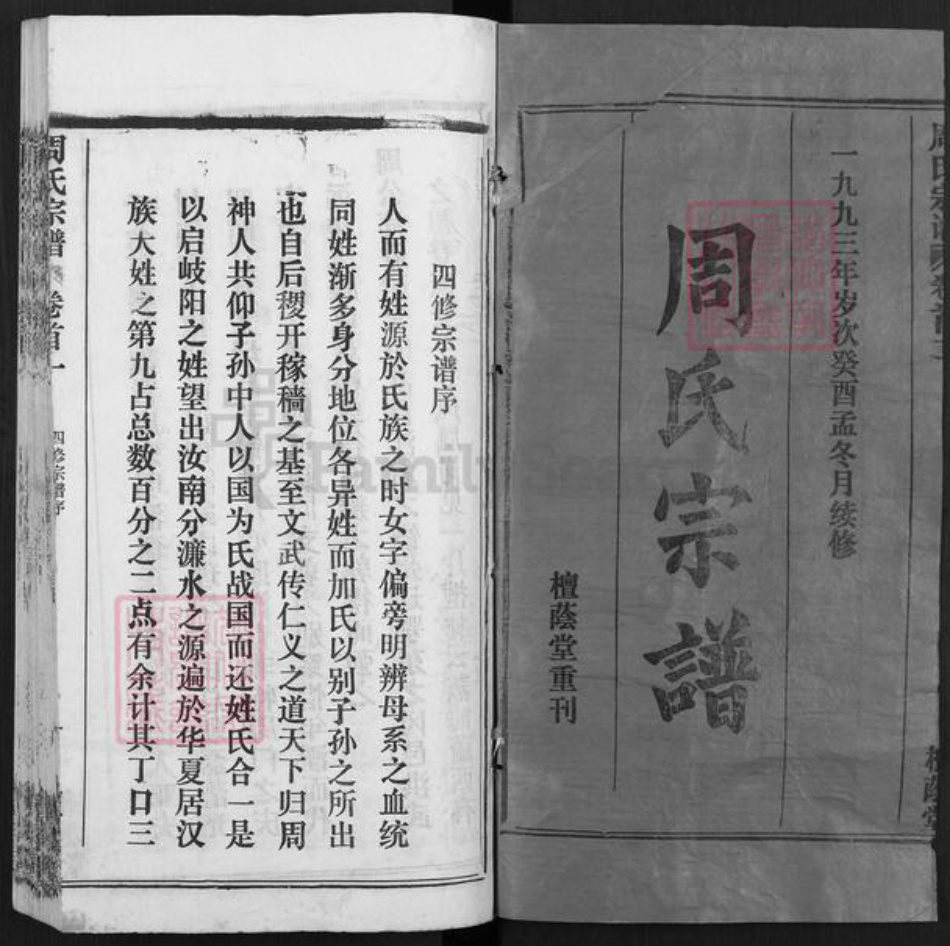 一九九三年岁次癸酉孟冬月续修
周氏宗譜
檀蔭堂重刊
四修宗谱序
人而有姓源於氏族之时女字偏旁明辨母系之血统
同姓渐多身分地位各异姓而加氏以别子孙之所出
也自后稷开稼穑之基至文武传仁义之道天下归周
神人共仰子孙中人以国为氏战国而还姓氏合一是
以启岐阳之姓望出汝南分濂水之源遍於华夏居汉
族大姓之第九占总数百分之二点有余计其丁口三
周氏宗谱 卷首一
四修宗谱序